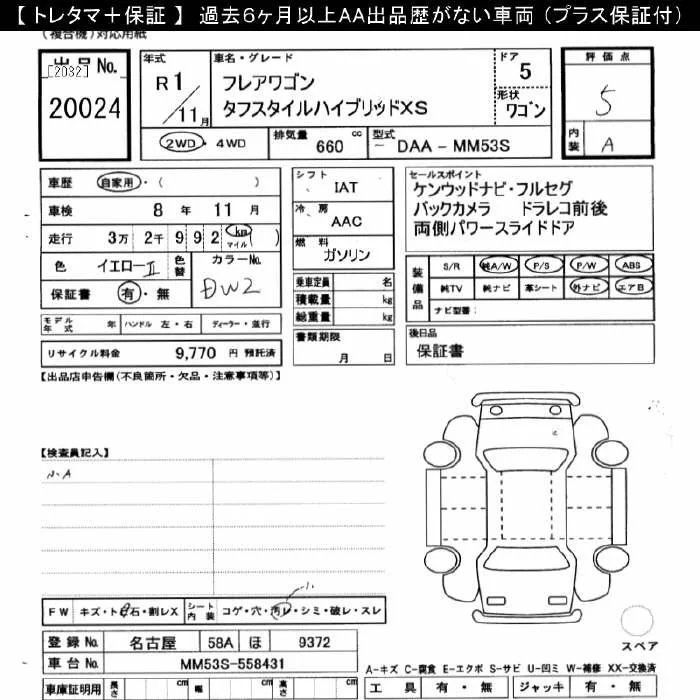 【 トレタマ＋保証 】 過去６ヶ月以上ＡＡ出品歴がない車両 （プラス保証付）
(複合機)対応用紙
出品No.
[2032]
20024
年式
R 1 / 11月
車名・グレード
フレアワゴン
タフスタイルハイブリッドXS
ドア
5
形状
ワゴン
2WD・4WD
排気量
660 cc
型式
DAA - MM53S
評価点
5
内装
A
車歴 自家用・( )
車検 8 年 11 月
走行 3万 2千 9 9 2 km マイル ( )
色 イエローII 色替 カラーNo.
DW2
保証書 有・無
シフト
IAT
冷房
AAC
燃料
ガソリン
乗車定員 名
積載量 kg
総重量 kg
セールスポイント
ケンウッドナビ・フルセグ
バックカメラ ドラレコ前後
両側パワースライドドア
装備品
S/R 純A/W P/S P/W ABS
純TV 純ナビ 革シート 外ナビ エアB
ナビ型番：
モデル年式 年 ハンドル 左・右 ディーラー・並行
書類期限
月 日
後日品
保証書
リサイクル料金 9,770 円 預託済
【出品店申告欄(不良箇所・欠品・注意事項等)】
【検査員記入】
N-A
FW キズ・ト石・割レX シート内装 コゲ・穴・汚レ・シミ・破レ・スレ
登録No. 名古屋 58A ほ 9372
車台No. MM53S-558431
車庫証明用 長さ cm 幅 cm 高さ cm
スペア
A-キズ C-腐食 E-エクボ S-サビ U-凹ミ W-補修 XX-交換済
工具 有・無 ジャッキ 有・無